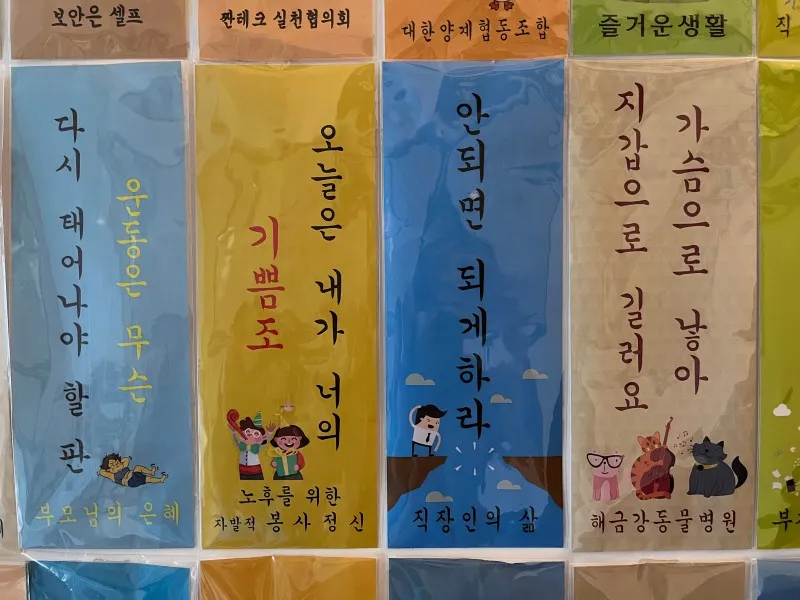 보안은 셀프
짠테크 실천협의회
대한양계협동조합
즐거운생활
직
운동은 무슨
다시 태어나야 할 판
부모님의 은혜
오늘은 내가 너의
기쁨조
노후를 위한
자발적 봉사정신
안되면 되게하라
직장인의 삶
가슴으로 낳아
지갑으로 길러요
해금강동물병원
부